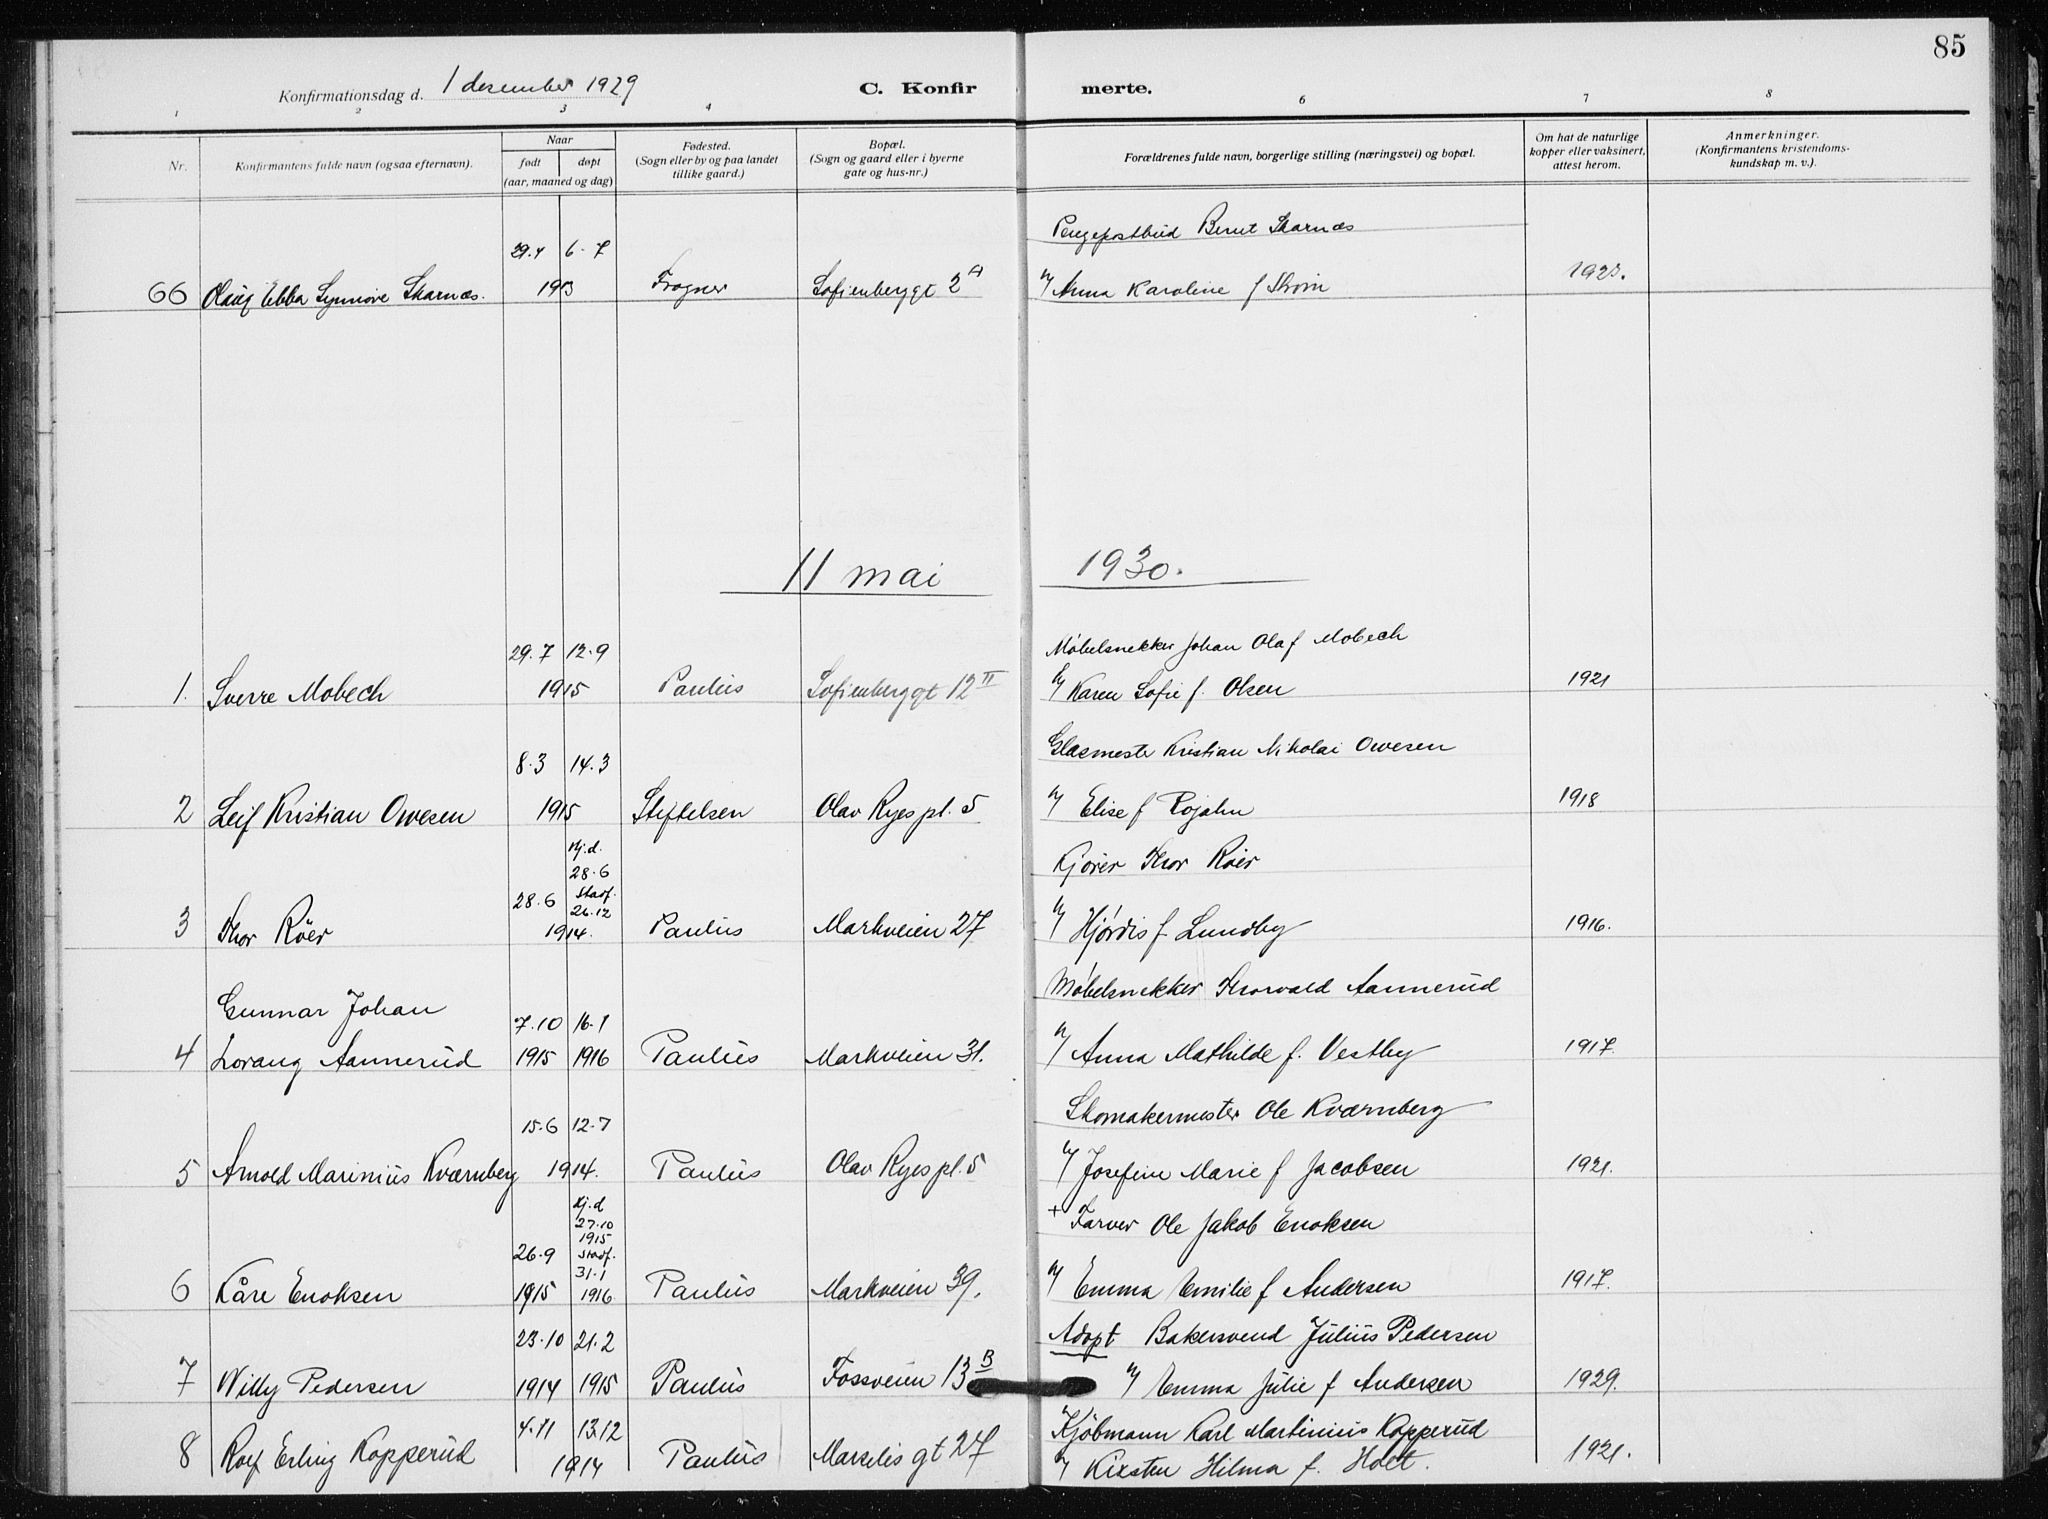 85
Konfirmationsdag d. 1 desember 1929
C. Konfir merte.
1 2 3 4 6 7 8
Nr.
Konfirmantens fulde navn (ogsaa efternavn).
Naar
født døpt
(aar, maaned og dag)
Fødested.
(Sogn eller by og paa landet
tillike gaard.)
Bopæl.
(Sogn og gaard eller i byerne
gate og hus-nr.)
Forældrenes fulde navn, borgerlige stilling (næringsvei) og bopæl.
Om hat de naturlige
kopper eller vaksinert,
attest herom.
Anmerkninger.
(Konfirmantens kristendoms-
kundskap m. v.).
29.4 6-7 Pengepostbud Bernt Skarnæs
66 Olaug Ebba Synnøve Skarnæs. 1913 Frogner Sofienberggt 2 A Anna Karoline f 1923.
11 mai 1930.
29.7 12.9 Møbelsnekker Johan Olaf Mobech
1. Sverre Mobech 1915 Paulus Sofienberggt 12 II Karen Sofie f. Olsen 1921
8.3 14.3 Glasmester Kristian Nikolai Owesen
2 Leif Kristian Owesen 1915 Stiftelsen Olav Ryes pl. 5 Elise f Rojahn 1918
Hj.d.
28.6 Kjører Thor Røer
28.6 Stadf.
26.12
3 Thor Røer 1914. Paulus Markveien 27 Hjørdis f. Lundby 1916.
Møbelsnekker Thorvald Aannerud
Gunnar Johan 7.10 16.1
4 Lorang Aannerud 1915 1916 Paulus Markveien 31. Anna Mathilde f. Vestby 1917.
15.6 12.7 Skomakermester Ole Kværnberg
5 Arnold Marinius Kværnberg 1914. Paulus Olav Ryes pl. 5 Josefine Marie f Jacobsen 1921.
Hj.d
27.10 + Farver Ole Jakob Enoksen
1915
26.9 Stadf.
31.1
6 Kåre Enoksen 1915 1916 Paulus Markveien 39. Emma Emilie f Andersen 1917.
23.10 21.2 Adopt Bakersvend Julius Pedersen
7 Willy Pedersen 1914 1915 Paulus Fossveien 13 B Emma Julie f Andersen 1929.
4.11 13.12 Kjøbmann Karl Martinius Kopperud
8 Rolf Erling Kopperud 1914 Paulus Marselis gt 27 Kirsten Hilma f. Holt. 1921.